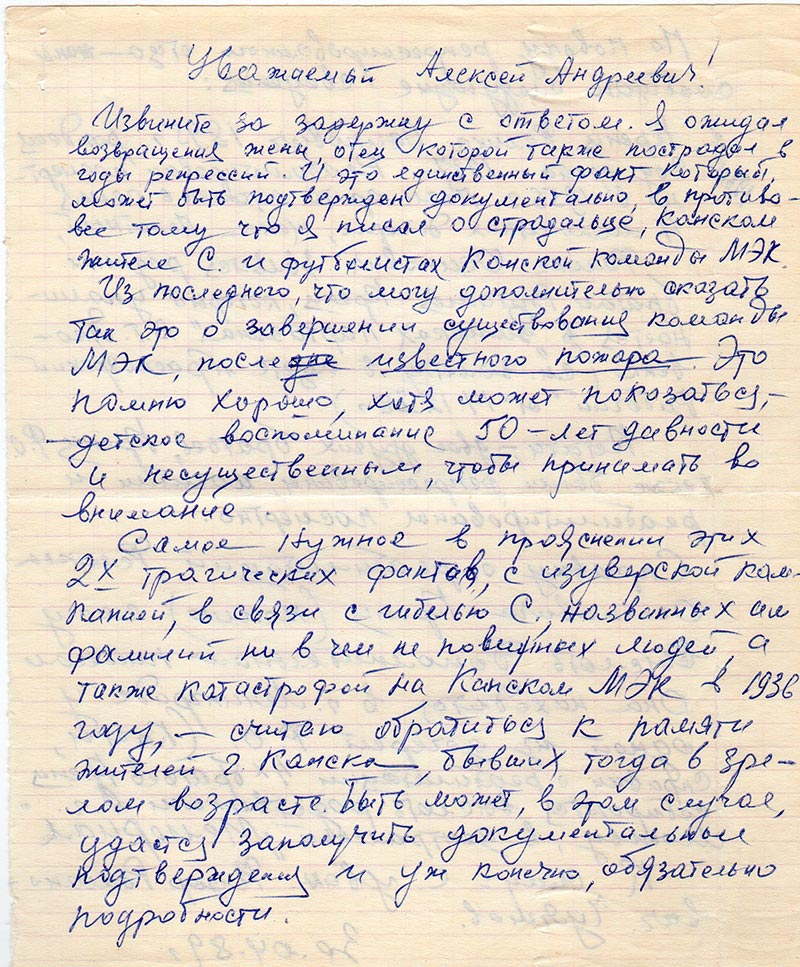 Уважаемый Алексей Андреевич!
Извините за задержку с ответом. Я ожидал
возвращения жены, отец которой также пострадал в
годы репрессий. И это единственный факт который,
может быть подтвержден документально, в противо-
вес тому что я писал о страдальце, Канском
жителе С. и футболистах Канской команды МЭК.
Из последнего, что могу дополнительно сказать
так это о завершении существования команды
МЭК, после известного пожара. Это
помню хорошо, хотя может показаться,-
-детское воспоминание 50-лет давности
и несущественным, чтобы принимать во
внимание.
Самое нужное в прояснении этих
2х трагических фактов, с изуверской кам-
панией, в связи с гибелью С., названных им
фамилий ни в чем не повинных людей, а
также катастрофой на Канском МЭК в 1936
году, — считаю обратиться к памяти
жителей г. Канска, бывших тогда в зре-
лом возрасте. Быть может, в этом случае,
удастся заполучить документальные
подтверждения и уж конечно, обязательно
подробности.